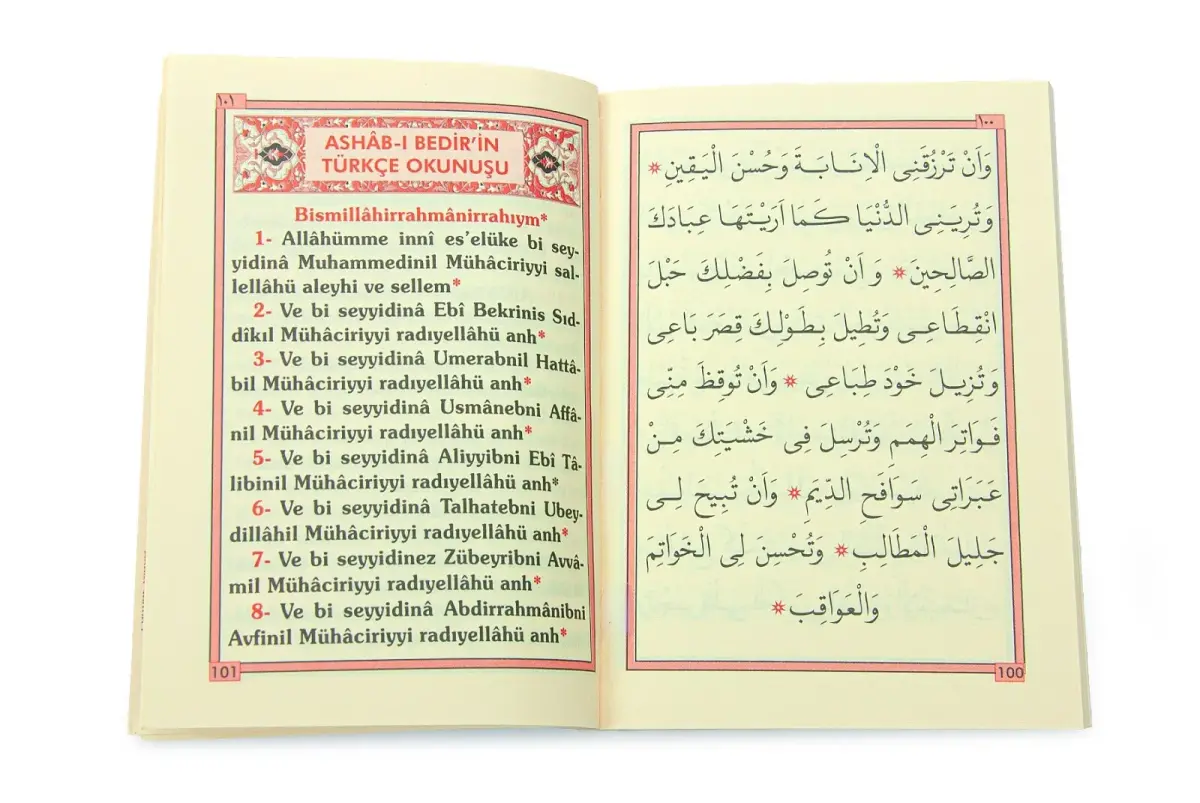 ١٠٠
وَاَنْ تَرْزُقَنِى الْاِنَابَةَ وَحُسْنَ الْيَقِينِ *
وَتُرِيَنِى الدُّنْيَا كَمَا اَرَيْتَهَا عِبَادَكَ
الصَّالِحِينَ * وَ اَنْ تُوصِلَ بِفَضْلِكَ حَبْلَ
انْقِطَاعِى وَتُطِيلَ بِطَوْلِكَ قِصَرَ بَاعِى
وَتُزِيلَ خَوْدَ طِبَاعِى * وَاَنْ تُوقِظَ مِنِّى
فَوَاتِرَ الْهِمَمِ وَتُرْسِلَ فِى خَشْيَتِكَ مِنْ
عَبَرَاتِى سَوَافِحَ الدِّيَمِ * وَاَنْ تُبِيحَ لِى
جَلِيلَ الْمَطَالِبِ * وَتُحْسِنَ لِى الْخَوَاتِمَ
وَالْعَوَاقِبَ *
100
١٠١
ASHÂB-I BEDİR'İN
TÜRKÇE OKUNUŞU
Bismillâhirrahmânirrahıym*
1- Allâhümme innî es'elüke bi sey-
yidinâ Muhammedinil Mühâciriyyi sal-
lellâhü aleyhi ve sellem*
2- Ve bi seyyidinâ Ebî Bekrinis Sıd-
dîkıl Mühâciriyyi radıyellâhü anh*
3- Ve bi seyyidinâ Umerabnil Hattâ-
bil Mühâciriyyi radıyellâhü anh*
4- Ve bi seyyidinâ Usmânebni Affâ-
nil Mühâciriyyi radıyellâhü anh*
5- Ve bi seyyidinâ Aliyyibni Ebî Tâ-
libinil Mühâciriyyi radıyellâhü anh*
6- Ve bi seyyidinâ Talhatebni Ubey-
dillâhil Mühâciriyyi radıyellâhü anh*
7- Ve bi seyyidinez Zübeyribni Avvâ-
mil Mühâciriyyi radıyellâhü anh*
8- Ve bi seyyidinâ Abdirrahmânibni
Avfinil Mühâciriyyi radıyellâhü anh*
101